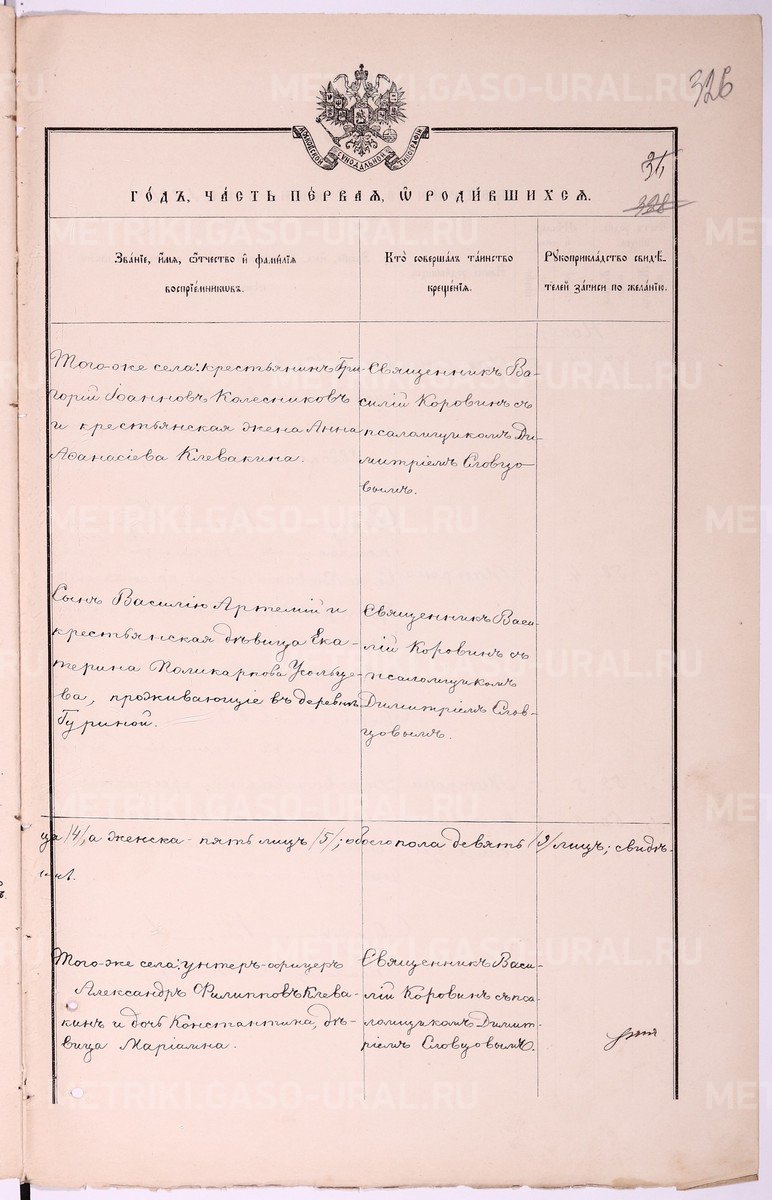 326
МОСКОВСКОЙ СѴНОДАЛЬНОЙ ТИПОГРАФІИ
31
328
ГО́ДЪ, ЧА́СТЬ ПЕ́РВАЯ, Ѽ РОДИ́ВШИХСЯ.
Зва́нїе, и҆́мя, ѻ҆́тчество и҆ фами́лїя
воспрїе́мникѡвъ.
Кто̀ соверша́лъ та́инство
креще́нїя.
Рꙋкоприкла́дство свидѣ́-
телей за́писи по жела́нїю.
Того-же села: крестьянинъ Гри-
горій Іоанновъ Колесниковъ
и крестьянская жена Анна
Аѳанасіева Клевакина.
Священникъ Ва-
силій Коровинъ съ
псаломщикомъ Ди-
митріемъ Словцо-
вымъ.
Сынъ Василію Артемій и
крестьянская дѣвица Ека-
терина Поликарпова Усольце-
ва, проживающіе въ деревнѣ
Гуриной.
Священникъ Васи-
лій Коровинъ съ
псаломщикомъ
Димитріемъ Слов-
цовымъ.
ца /4/, а женска - пять лицъ /5/; обоего пола девять /9/ лицъ; свидѣ-
Того-же села: унтеръ-офицеръ
Александръ Филипповъ Клева-
кинъ и дочь Константина, дѣ-
вица Маріамна.
Священникъ Васи-
лій Коровинъ съ пса-
ломщикомъ Димит-
ріемъ Словцовымъ.
METRIKI.GASO-URAL.RU